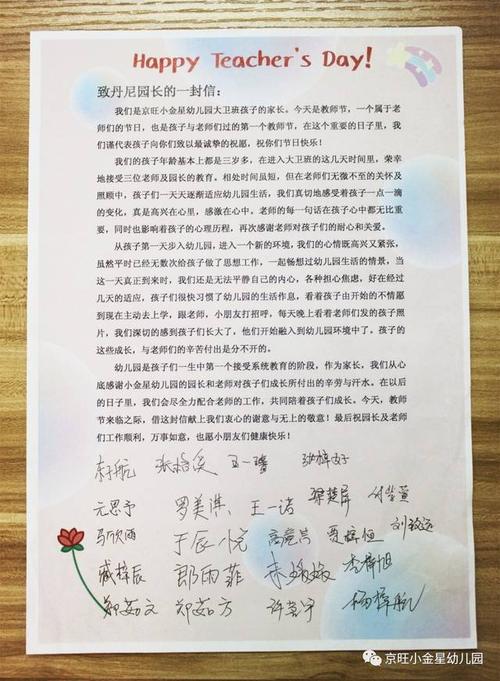 Happy Teacher's Day!
致丹尼园长的一封信：
我们是京旺小金星幼儿园大卫班孩子的家长。今天是教师节，一个属于老
师们的节日，也是孩子与老师们过的第一个教师节，在这个重要的日子里，我
们谨代表孩子向你们致以最诚挚的祝愿，祝你们节日快乐！
我们的孩子年龄基本上都是三岁多，在进入大卫班的这几天时间里，荣幸
地接受三位老师及园长的教育。相处时间虽短，但在老师们无微不至的关怀及
照顾中，孩子们一天天逐渐适应幼儿园生活，我们真切地感受着孩子一点一滴
的变化，真是高兴在心里，感激在心中。老师的每一句话在孩子心中都无比重
要，同时也影响着孩子的心理历程，再次感谢老师对孩子们的耐心和关爱。
从孩子第一天步入幼儿园，进入一个新的环境，我们的心情既高兴又紧张，
虽然平时已经无数次给孩子做了思想工作，一起畅想过幼儿园生活的情景，当
这一天真正到来时，我们还是无法平静自己的内心，各种担心焦虑，好在经过
几天的适应，孩子们很快习惯了幼儿园的生活作息，看着孩子由开始的不情愿
到现在主动去上学，跟老师，小朋友打招呼，每天晚上看着老师们发的孩子照
片，我们深切的感到孩子们长大了，他们开始融入到幼儿园环境中了。孩子的
这些成长，与老师们的辛苦付出是分不开的。
幼儿园是孩子们一生中第一个接受系统教育的阶段，作为家长，我们从心
底感谢小金星幼儿园的园长和老师对孩子们成长所付出的辛劳与汗水。在以后
的日子里，我们会尽全力配合老师的工作，共同陪着孩子们成长。今天，教师
节来临之际，借这封信献上我们衷心的谢意与无上的敬意！最后祝园长及老师
们工作顺利，万事如意，也愿小朋友们健康快乐！
王一
元思予 罗美淇 王一诺
马欣雨 于辰 刘致远
臧梓辰 郎雨菲
郑茹文 郑茹方
京旺小金星幼儿园